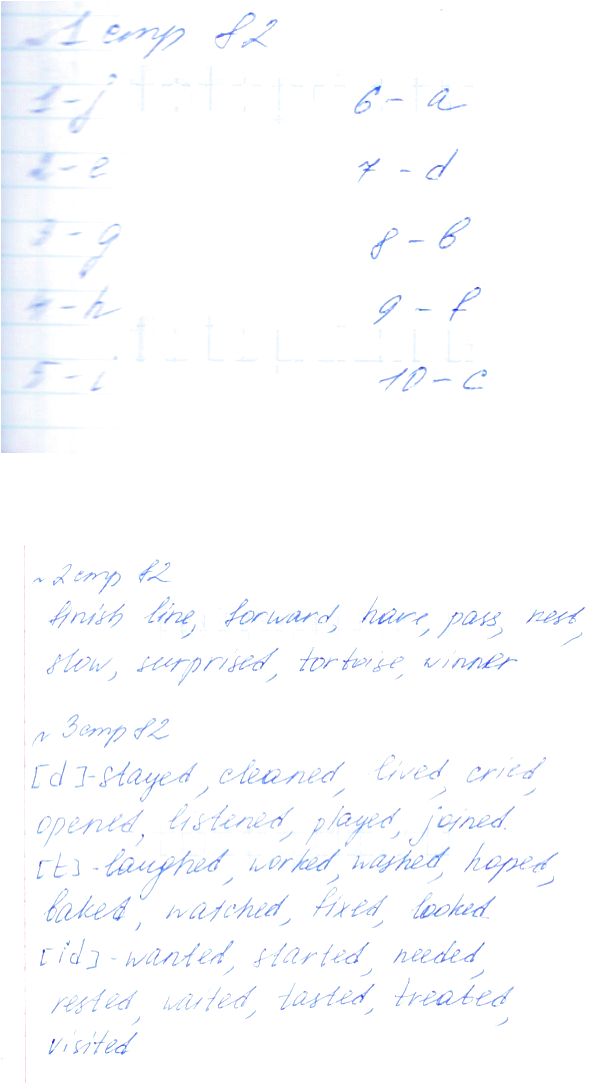 №1 стр 82
1 - j
2 - e
3 - g
4 - h
5 - i
6 - a
7 - d
8 - b
9 - f
10 - c
№2 стр 82
finish line, forward, hare, pass, rest,
slow, surprised, tortoise, winner
№3 стр 82
[d] - stayed, cleaned, lived, cried,
opened, listened, played, joined.
[t] - laughed, worked, washed, hoped,
baked, watched, fixed, looked.
[id] - wanted, started, needed,
rested, waited, tasted, treated,
visited